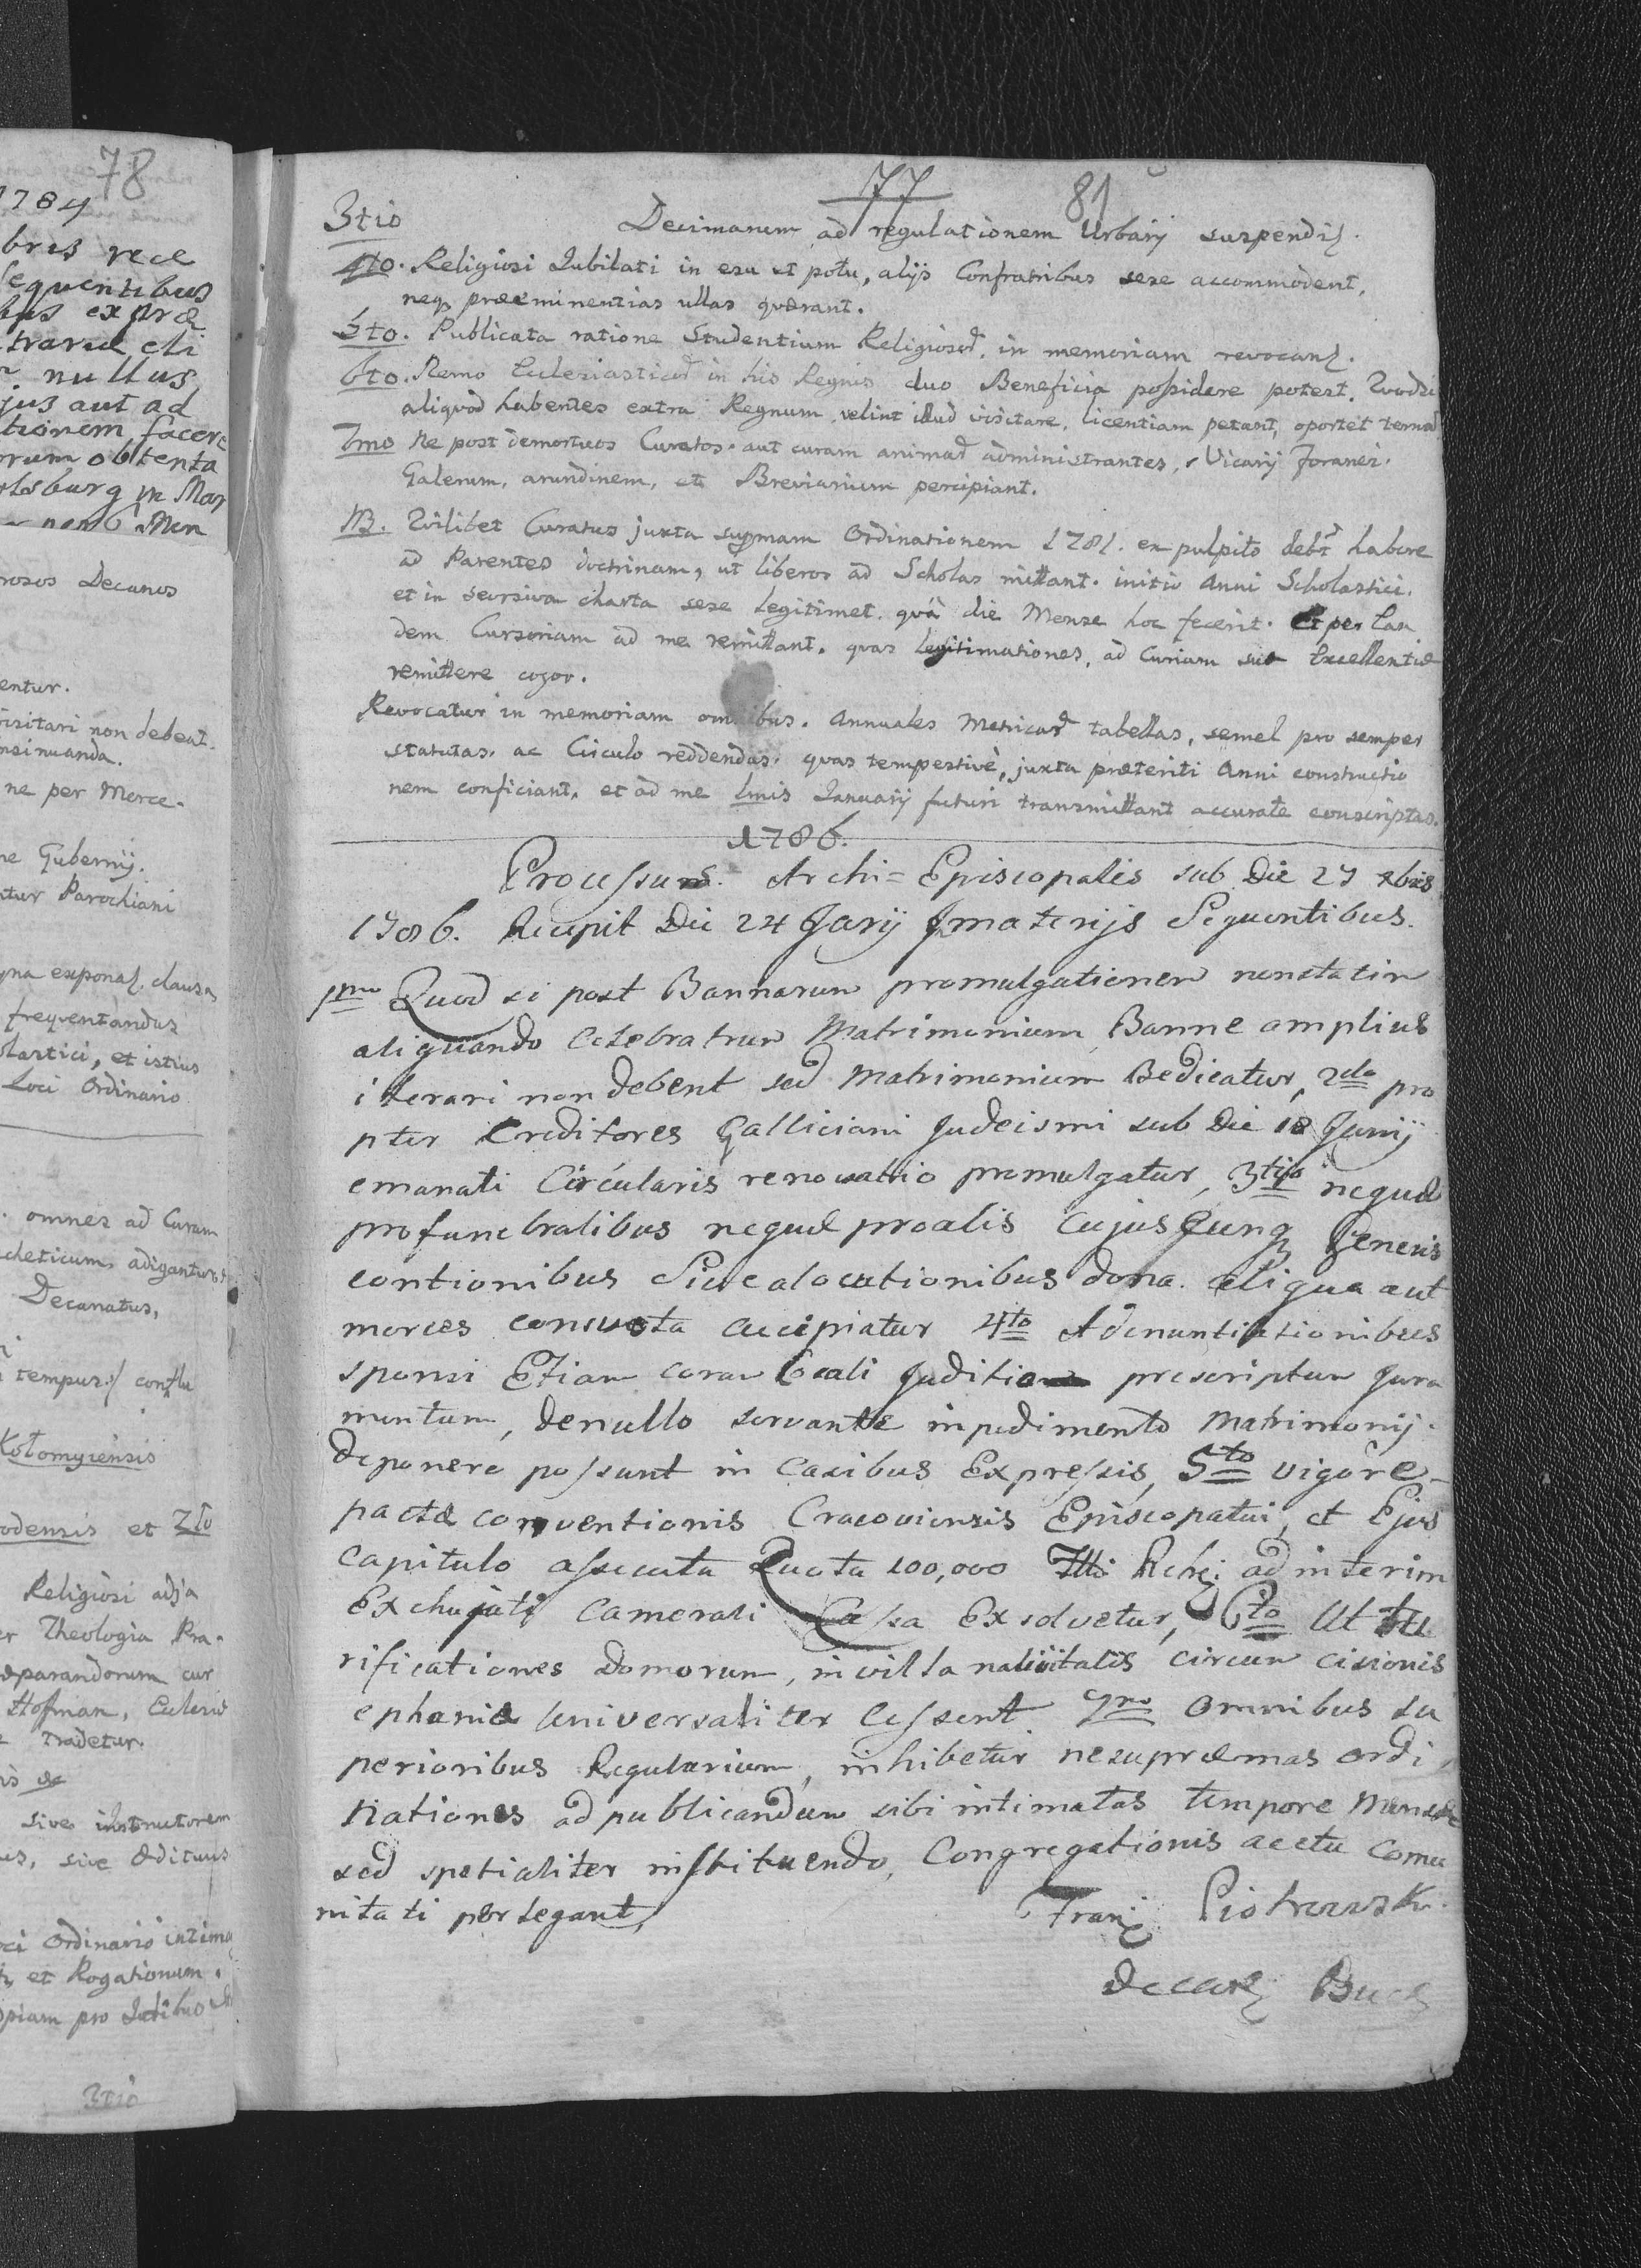 78
1784
bris
sequentibus
nullus
jus aut ad
tionem facere
obtenta
rosos Decanos
entur.
visitari non debeat.
nsinuanda.
ne per Merce.
Gubernij.
Parochiani
frequentandus
et istius
Loci Ordinario
omnes ad Curam
adigantur
Decanatus,
tempus
Kołomyiensis
odensis et
Religiosi
Theologia
parandorum cur
Hoffman,
Tradetur.
sive
sive
Ordinario
et Rogationum.
piam pro
3tio
77
81
3tio Decimarum ad regulationem Urbarij suspendiz.
4to. Religiosi Jubilati in esu et potu, alijs Confratribus sese accommodent,
neqz præeminentias ullas quærant.
5to. Publicata ratione Studentium Religiosoꝝ. in memoriam revocanz.
6to. Nemo Ecclesiasticoꝝ in his Regnis duo Beneficia poſsidere potest. Quodsi
aliquod habentes extra Regnum velint illud visitare, licentiam petant, oportet
7mo Ne post demortuos Curatos. aut curam animaꝝ administrantes, Vicarij Foranei.
Galerum, arundinem, et Breviarium percipiant.
NB. Quilibet Curatus juxta supremam Ordinationem 1781. ex pulpito debet habere
ad Parentes doctrinam, ut liberos ad Scholas mittant. initio Anni Scholastici.
et in seorsiva charta sese legitimet. quâ die Mense hoc fecerit. Et per ean
dem Cursoriam ad me remittant. quas legitimationes, ad Curiam suæ Excellentiæ
remittere cogor.
Revocatur in memoriam omnibus. Annuales Metricaꝝ tabellas, semel pro semper
statutas. ac Circulo reddendas. quas tempestivè, juxta præteriti Anni constructio
nem conficiant. et ad me Januarij futuri transmittant accurate conscriptas.
1786.
Proceſsus Archi=Episcopalis sub Die 27 Xbris
1786. Recepit Die 24 Jarij materijs Sequentibus.
1mo Quod si post Bannarum promulgationem non statim
aliquando Celebratrur Matrimonium, Banne amplius
iterari non debent sed Matrimonium Bedicatur, 2do pro
pter Creditores Galliciani Judeismi sub Die 18 Junij
emanati Circularis renovatio promulgatur, 3tio neque
pro funebralibus neque pro alis Cujuscunqz Generis
contionibus Sive alocutionibus dona aliqua aut
merces consueta accipiatur 4to A denuntiationibus
sponsi Etiam coram Locali Juditio prescriptum Jura
mentum, de nullo servante inpedimento Matrimonij.
deponere poſsunt in Casibus Expreſsis, 5to vigore
pactæ conventionis Cracoviensis Episcopatui, et Ejus
Capitulo aſsecuta Quota 100,000 ad interim
Camerali Caſsa Exsolvetur, 6to Ut tu
rificationes Domorum, in vilia nativitatis circum cisionis
ephaniæ Universaliter Ceſsent 7mo Omnibus su
perioribus Regularium, inhibetur ne supræmas ordi
nationes ad publicandum sibi intimatas tempore Mensæ
sed spetialiter inſtituendo, Congregationis acetu Comu
nitati perlegant,
Franz Piotrowski.